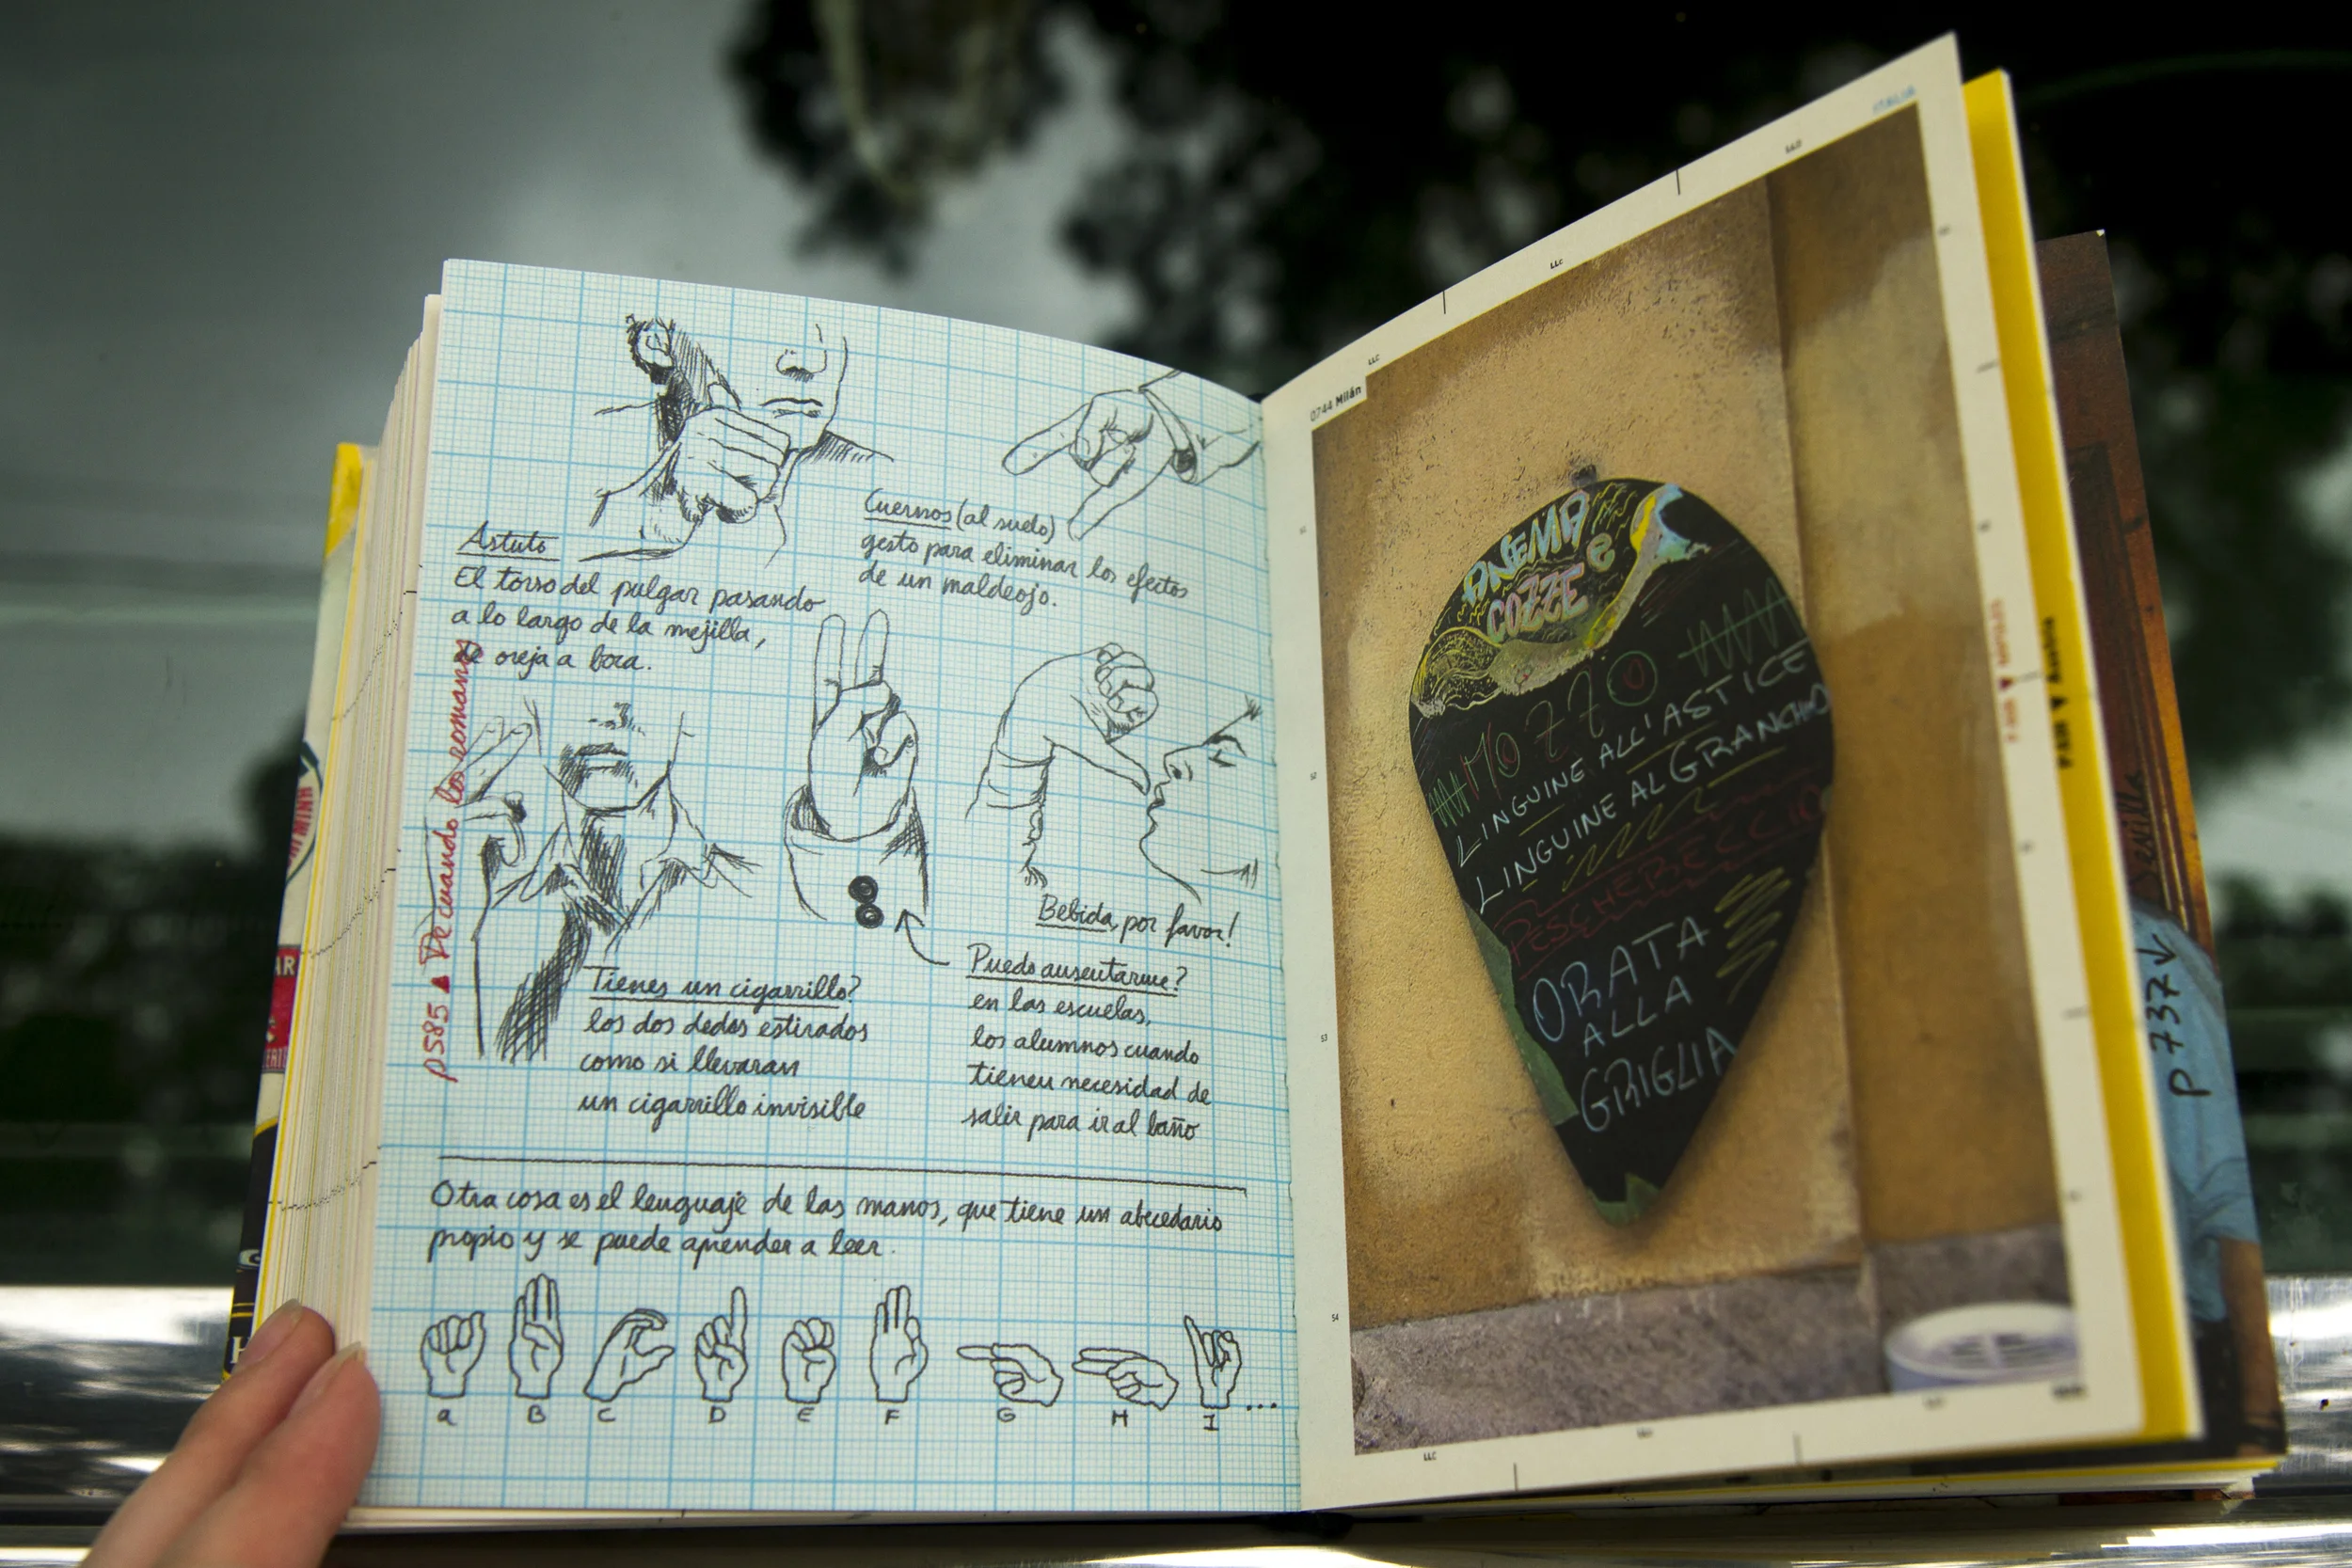 Astuto
El torso del pulgar pasando
a lo largo de la mejilla,
de oreja a boca.
Cuernos (al suelo)
gesto para eliminar los efectos
de un maldeojo.
Tienes un cigarrillo?
los dos dedos estirados
como si llevaran
un cigarrillo invisible
Bebida, por favor!
Puedo ausentarme?
en las escuelas,
los alumnos cuando
tienen necesidad de
salir para ir al baño
P585 ▲ De cuando los romanos
Otra cosa es el lenguaje de las manos, que tiene un abecedario
propio y se puede aprender a leer.
a B C D E F G H I ...
ITALIA
0744 Milán
ANEMA
E
COZZE
LINGUINE ALL'ASTICE
LINGUINE AL GRANCHIO
PESCHERECCIO
ORATA
ALLA
GRIGLIA
51
52
53
54
LLC
LLC
LLC
P 737
Sevilla